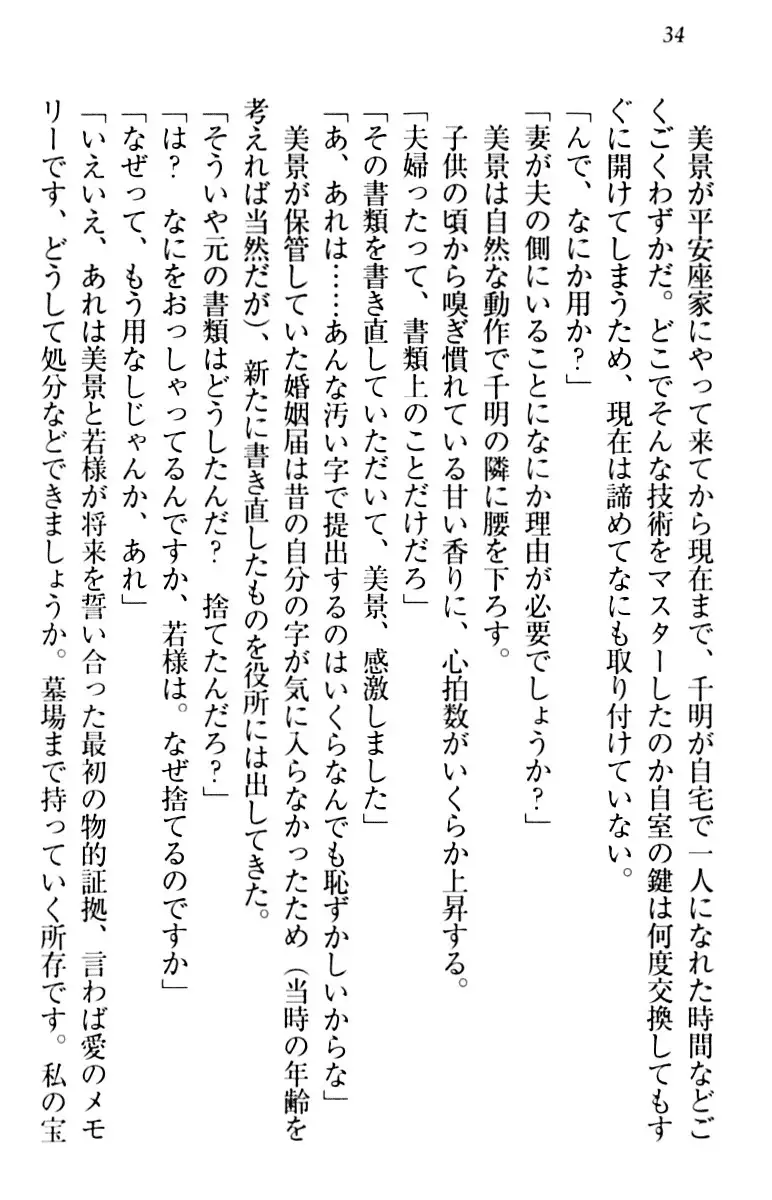 34
美景が平安座家にやって来てから現在まで、千明が自宅で一人になれた時間などご
くごくわずかだ。どこでそんな技術をマスターしたのか自室の鍵は何度交換してもす
ぐに開けてしまうため、現在は諦めてなにも取り付けていない。
「んで、なにか用か?」
「妻が夫の側にいることになにか理由が必要でしょうか?」
美景は自然な動作で千明の隣に腰を下ろす。
子供の頃から嗅ぎ慣れている甘い香りに、心拍数がいくらか上昇する。
「夫婦ったって、書類上のことだけだろ」
「その書類を書き直していただいて、美景、感激しました」
「あ、あれは……あんな汚い字で提出するのはいくらなんでも恥ずかしいからな」
美景が保管していた婚姻届は昔の自分の字が気に入らなかったため（当時の年齢を
考えれば当然だが）、新たに書き直したものを役所には出してきた。
「そういや元の書類はどうしたんだ?　捨てたんだろ?」
「は?　なにをおっしゃってるんですか、若様は。なぜ捨てるのですか」
「なぜって、もう用なしじゃんか、あれ」
「いえいえ、あれは美景と若様が将来を誓い合った最初の物的証拠、言わば愛のメモ
リーです、どうして処分などできましょうか。墓場まで持っていく所存です。私の宝